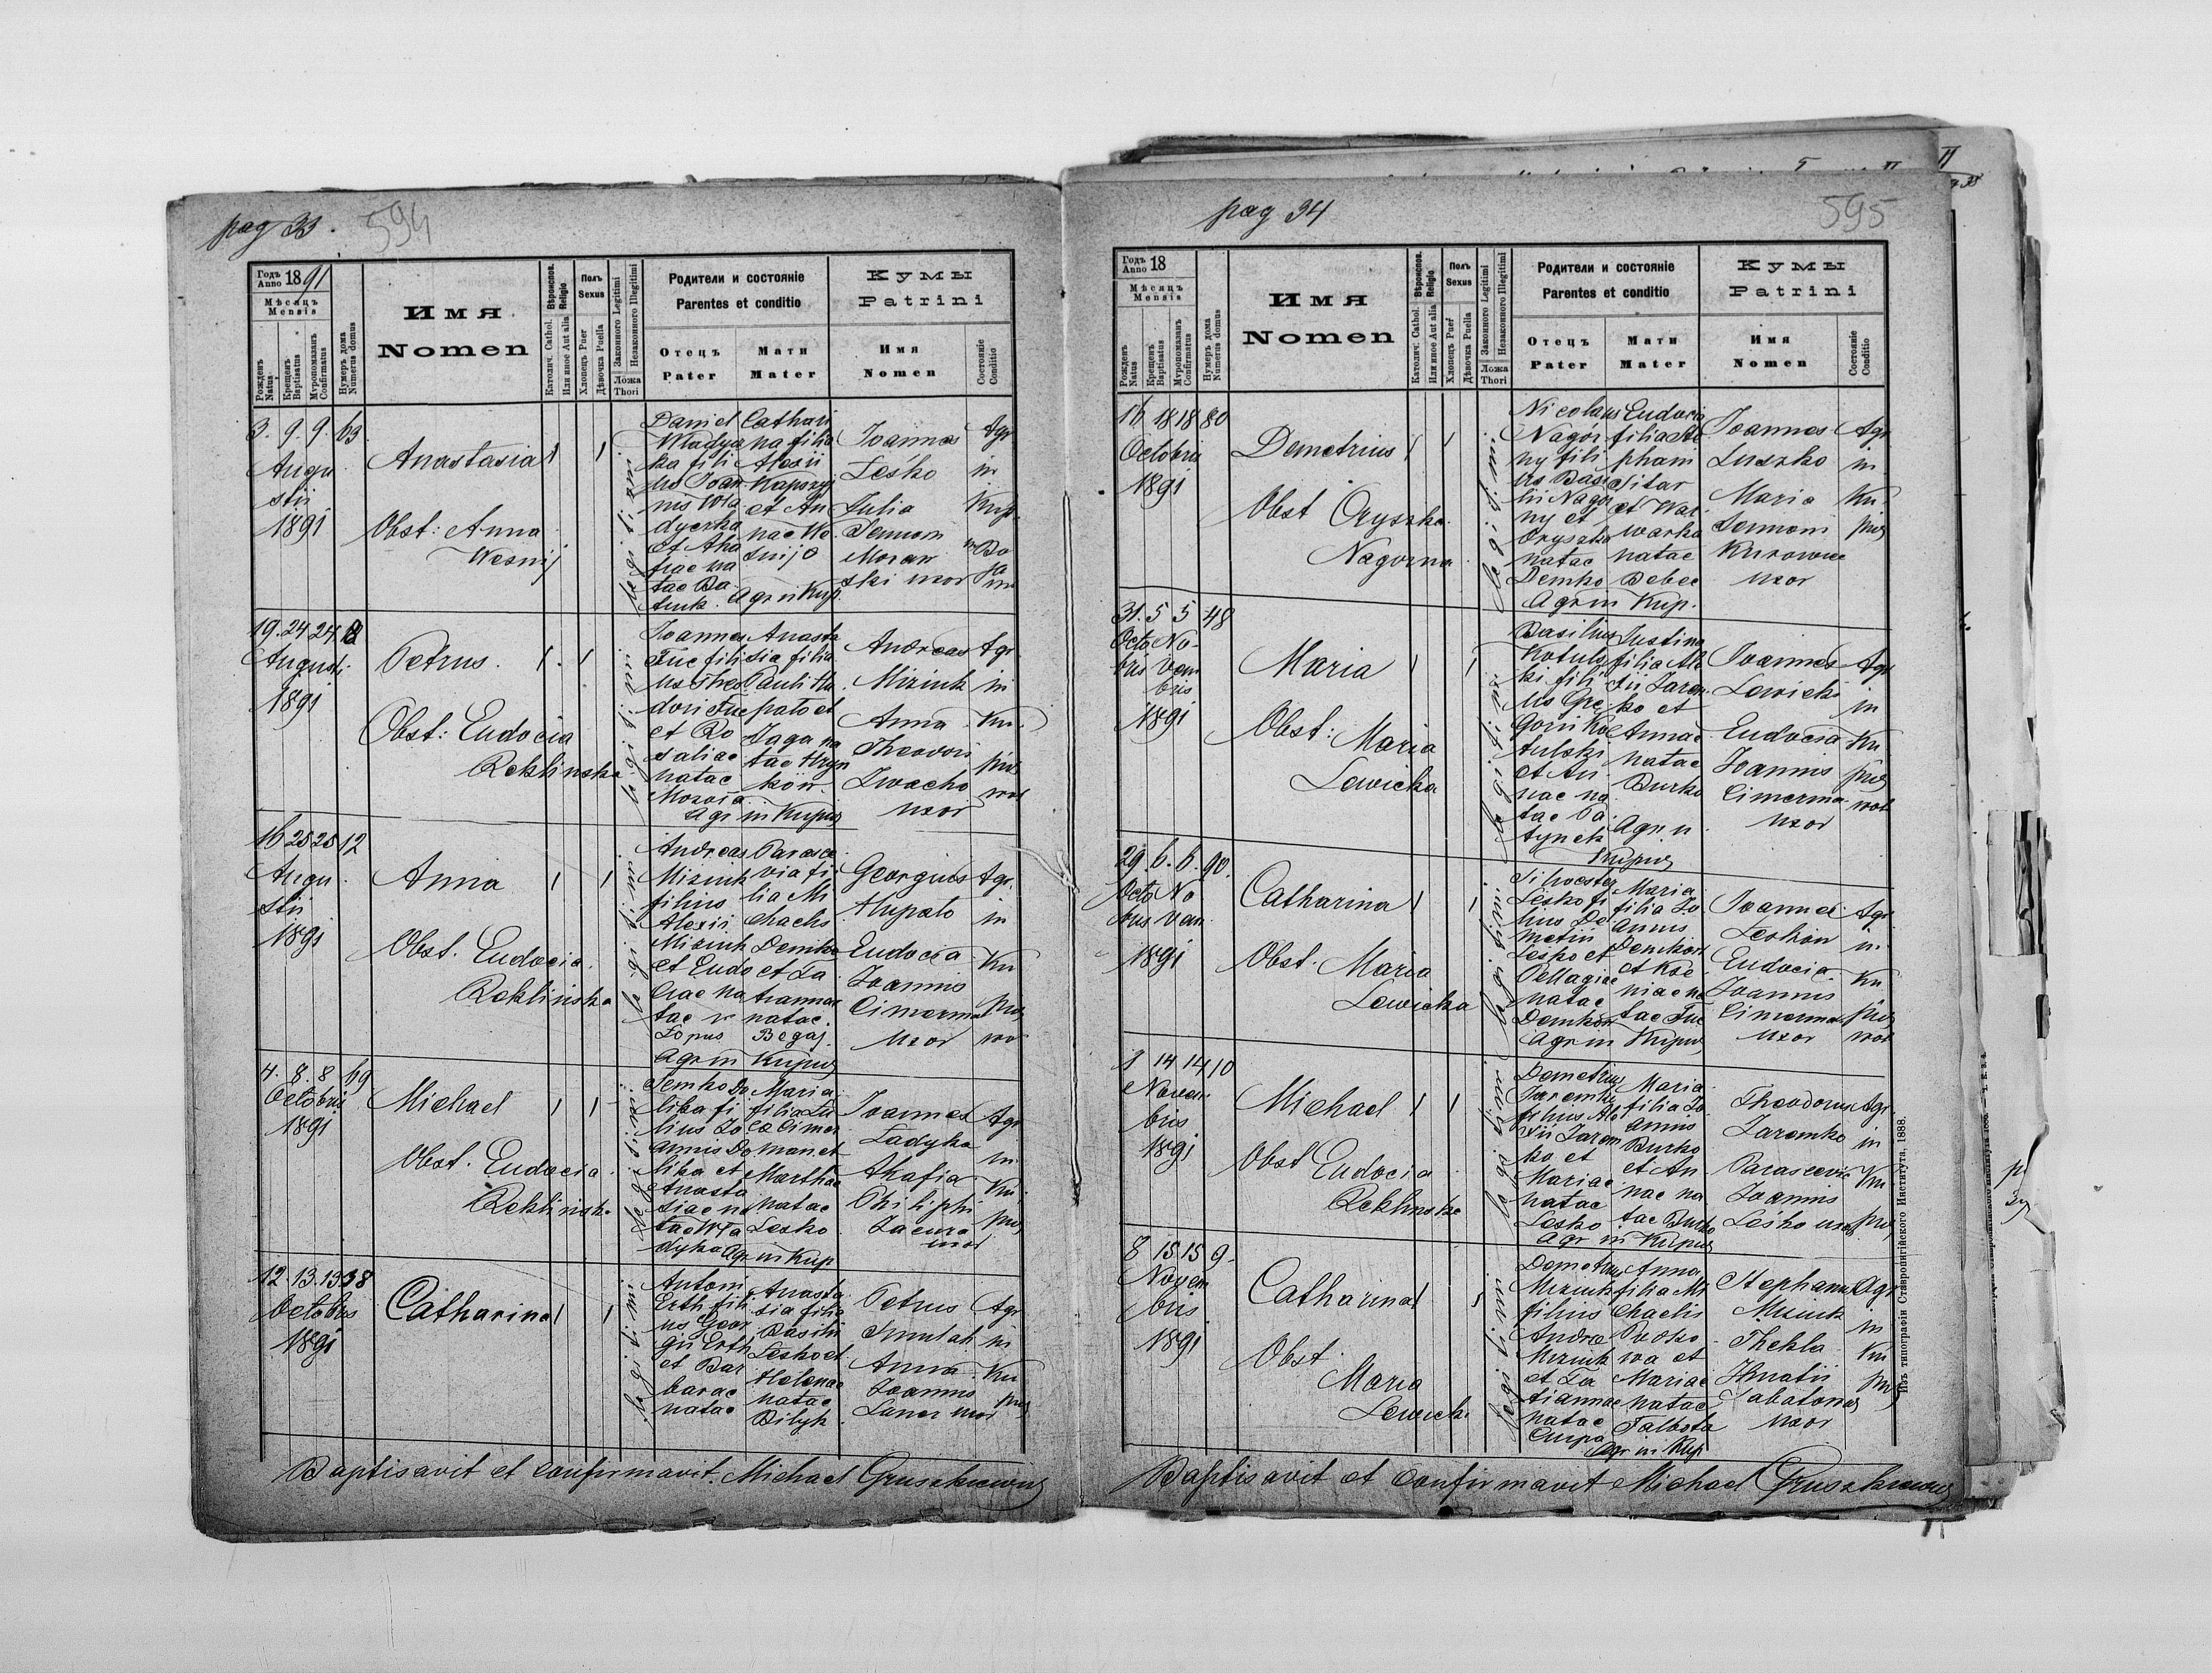 pag 33.
594
Годъ Anno 1891
Мѣсяцъ
Mensis
Рожденъ Natus
Крещенъ Baptisatus
Мѵропомазанъ Confirmatus
Нумеръ дома Numerus domus
Имя
Nomen
Вѣроиспов. Religio
Католич. Cathol.
Или иное Aut alia
Полъ
Sexus
Хлопецъ Puer
Дѣвочка Puella
Законного Legitimi
Незаконного Illegitimi
Ложа
Thori
Родители и состояніе
Parentes et conditio
Отецъ
Pater
Мати
Mater
Кумы
Patrini
Имя
Nomen
Состояніе
Conditio
3. 9. 9. 63
Augu
stii
1891
Anastasia
Obst: Anna
Wesnij
legitimi
Daniel
Wladyez
ka fili
us Joan
nis Wla
dyezka
et Aha
fiae na
tae Ba
tiuk.
Cathari
na filia
Alexii
et An
nae We
snijo
Agr in Kup.
Joannes
Leśko
Julia
Semion
uxor
Agr
in
Kup
19. 24 24
Augusti
1891
Petrus.
Obst: Eudocia
Reklinska
legitimi
Joannes
Fuc fili
us Theo
dori Fuc
et Ro
saliae
natae
Anasta
sia filia
Pauli Hu
pato et
Jaga na
tae Hryn
ków
Agr in Kupno
Andreas
Miziuk
Anna
Theodori
Iwacho
uxor
Agr
in
Ku
pno
16 25 25 12
Augu
stii
1891
Anna
Obst. Eudocia
Reklinska
legitimi
Andreas
Miziuk
filius
Alexii
Miziuk
et Eudo
ciae na
tae
Lopus
Parasce
via fi
lia Mi
chaelis
Demko
et Ta
tiannae
natae
Begaj.
Agr in Kupno
Georgius
Hupalo
Eudocia
Joannis
Cimerma
uxor
Agr.
in
Ku
pno
4. 8. 8 69
Octobris
1891
Michael
Obst. Eudocia
Reklinska
legitimi
Semko Do
lika fi
lius Jo
annis Do
lika et
Anasta
siae na
tae Wla
dyka
Maria
filia Lu
cae Cimer
man et
Marthae
natae
Lesko
Agr in Kup
Joannes
Ladyka
Ahafia
Philiphi
Jacura
uxor
Agr
in
Ku
pno
12. 13. 13 38
Octobris
1891
Catharina
legitimi
Antoni
Erth fili
us Geor
gii Erth
et Bar
barae
natae
Anasta
sia filia
Basilii
Lesko et
Helenae
natae
Bilyk
Petrus
Smulak
Anna
Joannis
Laner uxor
Agr
in
Ku
pno
Baptisavit et Confirmavit. Michael Gruszkiewicz
pag 34
595
Годъ Anno 18
Мѣсяцъ
Mensis
Рожденъ Natus
Крещенъ Baptisatus
Мѵропомазанъ Confirmatus
Нумеръ дома Numerus domus
Имя
Nomen
Вѣроиспов. Religio
Католич. Cathol.
Или иное Aut alia
Полъ
Sexus
Хлопецъ Puer
Дѣвочка Puella
Законного Legitimi
Незаконного Illegitimi
Ложа
Thori
Родители и состояніе
Parentes et conditio
Отецъ
Pater
Мати
Mater
Кумы
Patrini
Имя
Nomen
Состояніе
Conditio
16 18 18 80
Octobris
1891
Demetrius
Obst Oryszka
Nagorna
legitimi
Nicolaus
Nagór
ny fili
us Basi
lii Nagór
ny et
Oryszka
natae
Demko
Eudocia
filia Ste
phani
Sitar
et War
warka
natae
Bebec
Agr in Kup.
Joannes
Luszko
Maria
Semioni
uxor
Agr
in
Ku
pno
31. 5 5 48
Octo No
bris vem
bris
1891
Maria
Obst: Maria
Lewicka
legitimi
Basilius
Kotuls
ki fili
us Gre
gorii Ko
tulski
et An
nae na
tae Pa
tynek
Justina
filia Ale
xii Jarem
ko et
Annae
natae
Burko
Agr in
Kupno
Joannes
Lewicki
Eudocia
Joannis
Cimerma
uxor
Agr
in
Ku
pno
29. 6. 6. 90.
Octo No
bris vem
1891
Catharina
Obst. Maria
Lewicka
legitimi
Silvester
Lesko fi
lius De
metrii
Lesko et
Pellagiae
natae
Demkow
Maria
filia Jo
annis
Demkow
et Kse
niae na
tae Fuc
Agr in Kupno
Joannes
Leskow
Eudocia
Joannis
Cimerman
uxor
Agr
in
Ku
pno
8 14 14 10
Novem
bris
1891
Michael
Obst Eudocia
Reklinska
legitimi
Demetrius
Jaremko
filius Ale
xii Jarem
ko et
Mariae
natae
Lesko
Maria
filia Jo
annis
Burko
et An
nae na
tae Burko
Agr in Kupno
Theodorus
Jaremko
Parascevia
Joannis
Leśko uxor
Agr.
in
Ku
pno
8 15 15 9.
Novem
bris
1891
Catharina
Obst.
Maria
Lewicka
legitimi
Demetrius
Miziuk
filius
Andreae
Miziuk
et Ta
tiannae
natae
Anna
filia Mi
chaelis
et
Mariae
natae
Talbota
Agr in Kup
Stephanus
Miziuk
Thekla
Hnatii
uxor
Agr
in
Ku
pno
Baptisavit et Confirmavit Michael Gruszkiewicz
Изъ типографіи Ставропигійского Института, 1888.